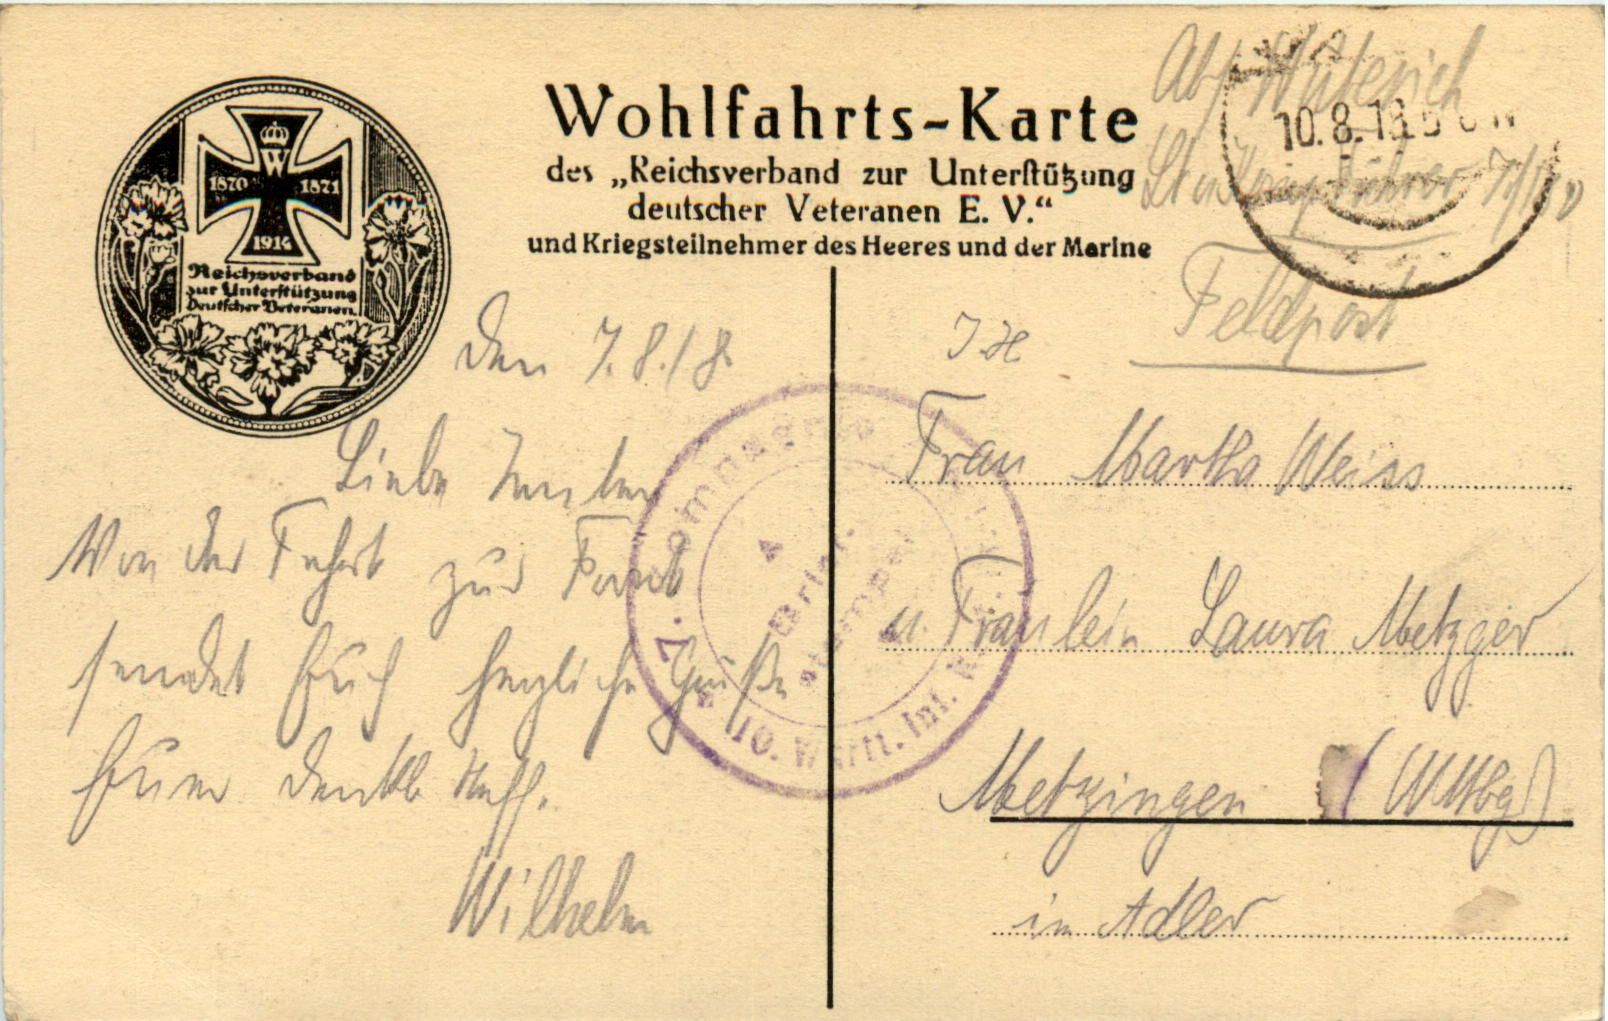 Wohlfahrts-Karte
des „Reichsverband zur Unterstützung
deutscher Veteranen E. V.“
und Kriegsteilnehmer des Heeres und der Marine
W
1870 1871
1914
Reichsverband
zur Unterstützung
deutscher Veteranen.
Abs.
10.8.18.
Feldpost
den 7.8.18.
Liebe
Von der Fahrt zur Front
sendet Euch herzliche Grüße
Euer dankb. Neffe.
Wilhelm
7. Kompagnie
Brief-
stempel
10. Württ. Inf.
Frau Martha Weiss
u. Fräulein Laura Metzger
Metzingen (Wttbg)
im Adler